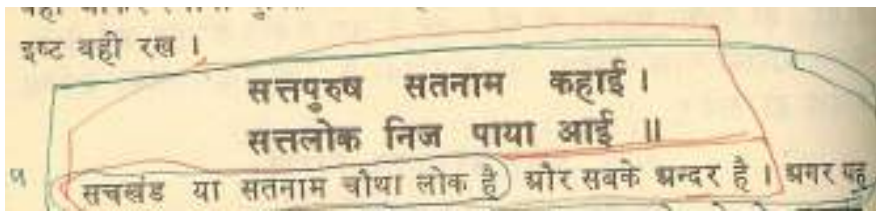 इष्ट वही रख ।
सत्तपुरुष सतनाम कहाई ।
सत्तलोक निज पाया आई ॥
सचखंड या सतनाम चौथा लोक है और सबके अन्दर है । अगर यह